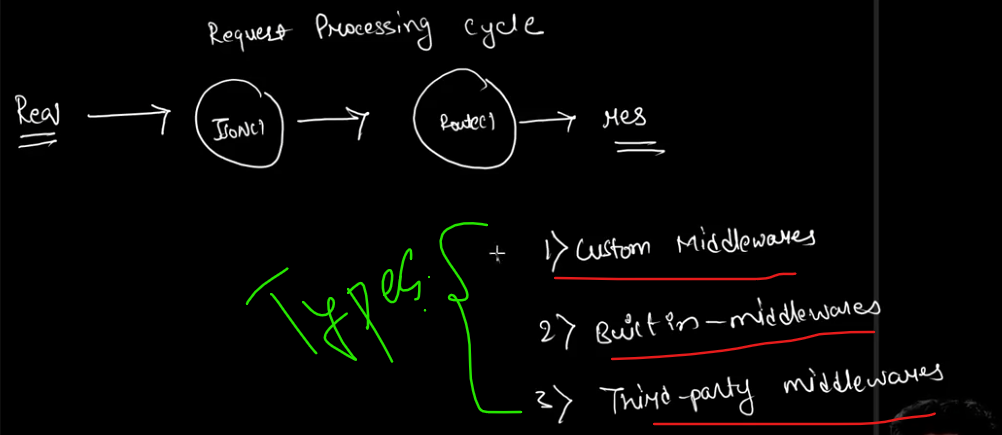 Request Processing Cycle
Req → JSON() → Route() → res
Types:
1) Custom Middlewares
2) Built in-middlewares
3) Third-party middlewares